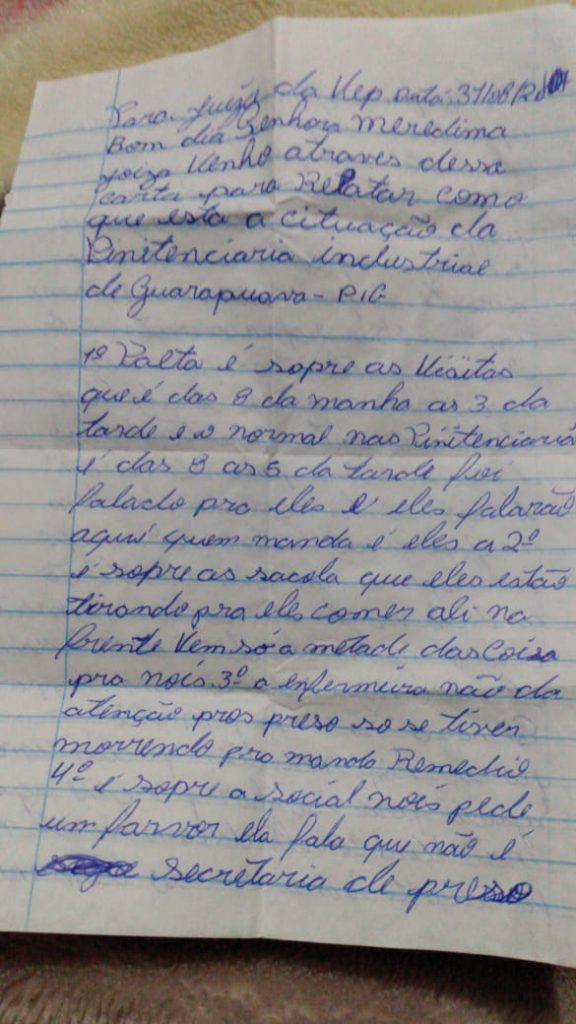 Para juiza da Vep. data: 31/08/20
Bom dia Senhora meredima
joiza Venho atraves dessa
carta para Relatar como
que esta a cituação da
Pinitenciaria industrial
de Guarapuava - PIG
1º Palta é sopre as Visitas
que é das 9 da manha as 3 da
tarde e o normal nas Pinitenciaria
é das 9 as 5 da tarde foi
falado pra eles e eles falarão
aqui quem manda é eles a 2º
é sopre as sacola que eles estão
tirando pra eles comer ali na
frente Vem só a metade das Coiza
pra nois 3º a enfermeira não da
atenção pros preso so se tiver
morrendo pra manda Remedio
4º é sopre a social nois pede
um farvor ela fala que não é
secretaria de preso